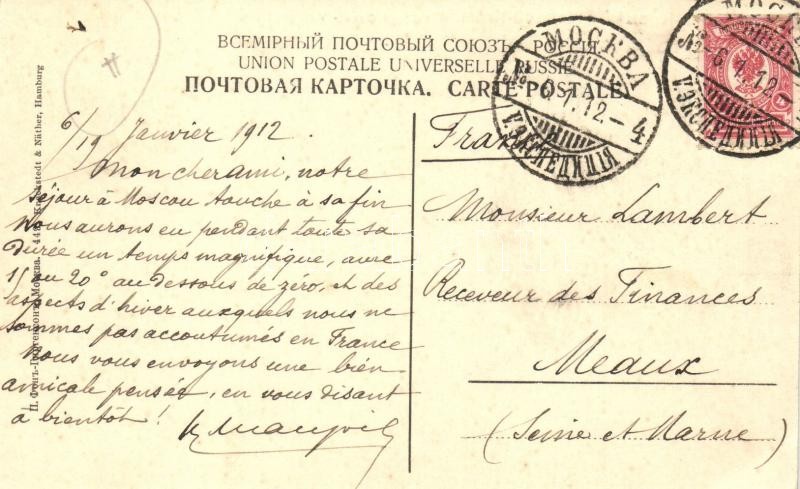 ВСЕМІРНЫЙ ПОЧТОВЫЙ СОЮЗЪ. РОССІЯ.
UNION POSTALE UNIVERSELLE RUSSIE
ПОЧТОВАЯ КАРТОЧКА. CARTE POSTALE
МОСКВА
6.1.12
4
V. ЭКСПЕДИЦІЯ
МОСК
6.1.12
V. ЭКСПЕДИЦІЯ
6/19 Janvier 1912.
Mon cher ami, notre
séjour à Moscou touche à sa fin
Nous aurons eu pendant toute sa
durée un temps magnifique, avec
15 ou 20° au dessous de zéro, et des
aspects d'hiver auxquels nous ne
sommes pas accoutumés en France
Nous vous envoyons une bien
amicale pensée, en vous disant
à bientôt!
Monsieur Lambert
Receveur des Finances
Meaux
(Seine et Marne)
Näther, Hamburg
Москва.